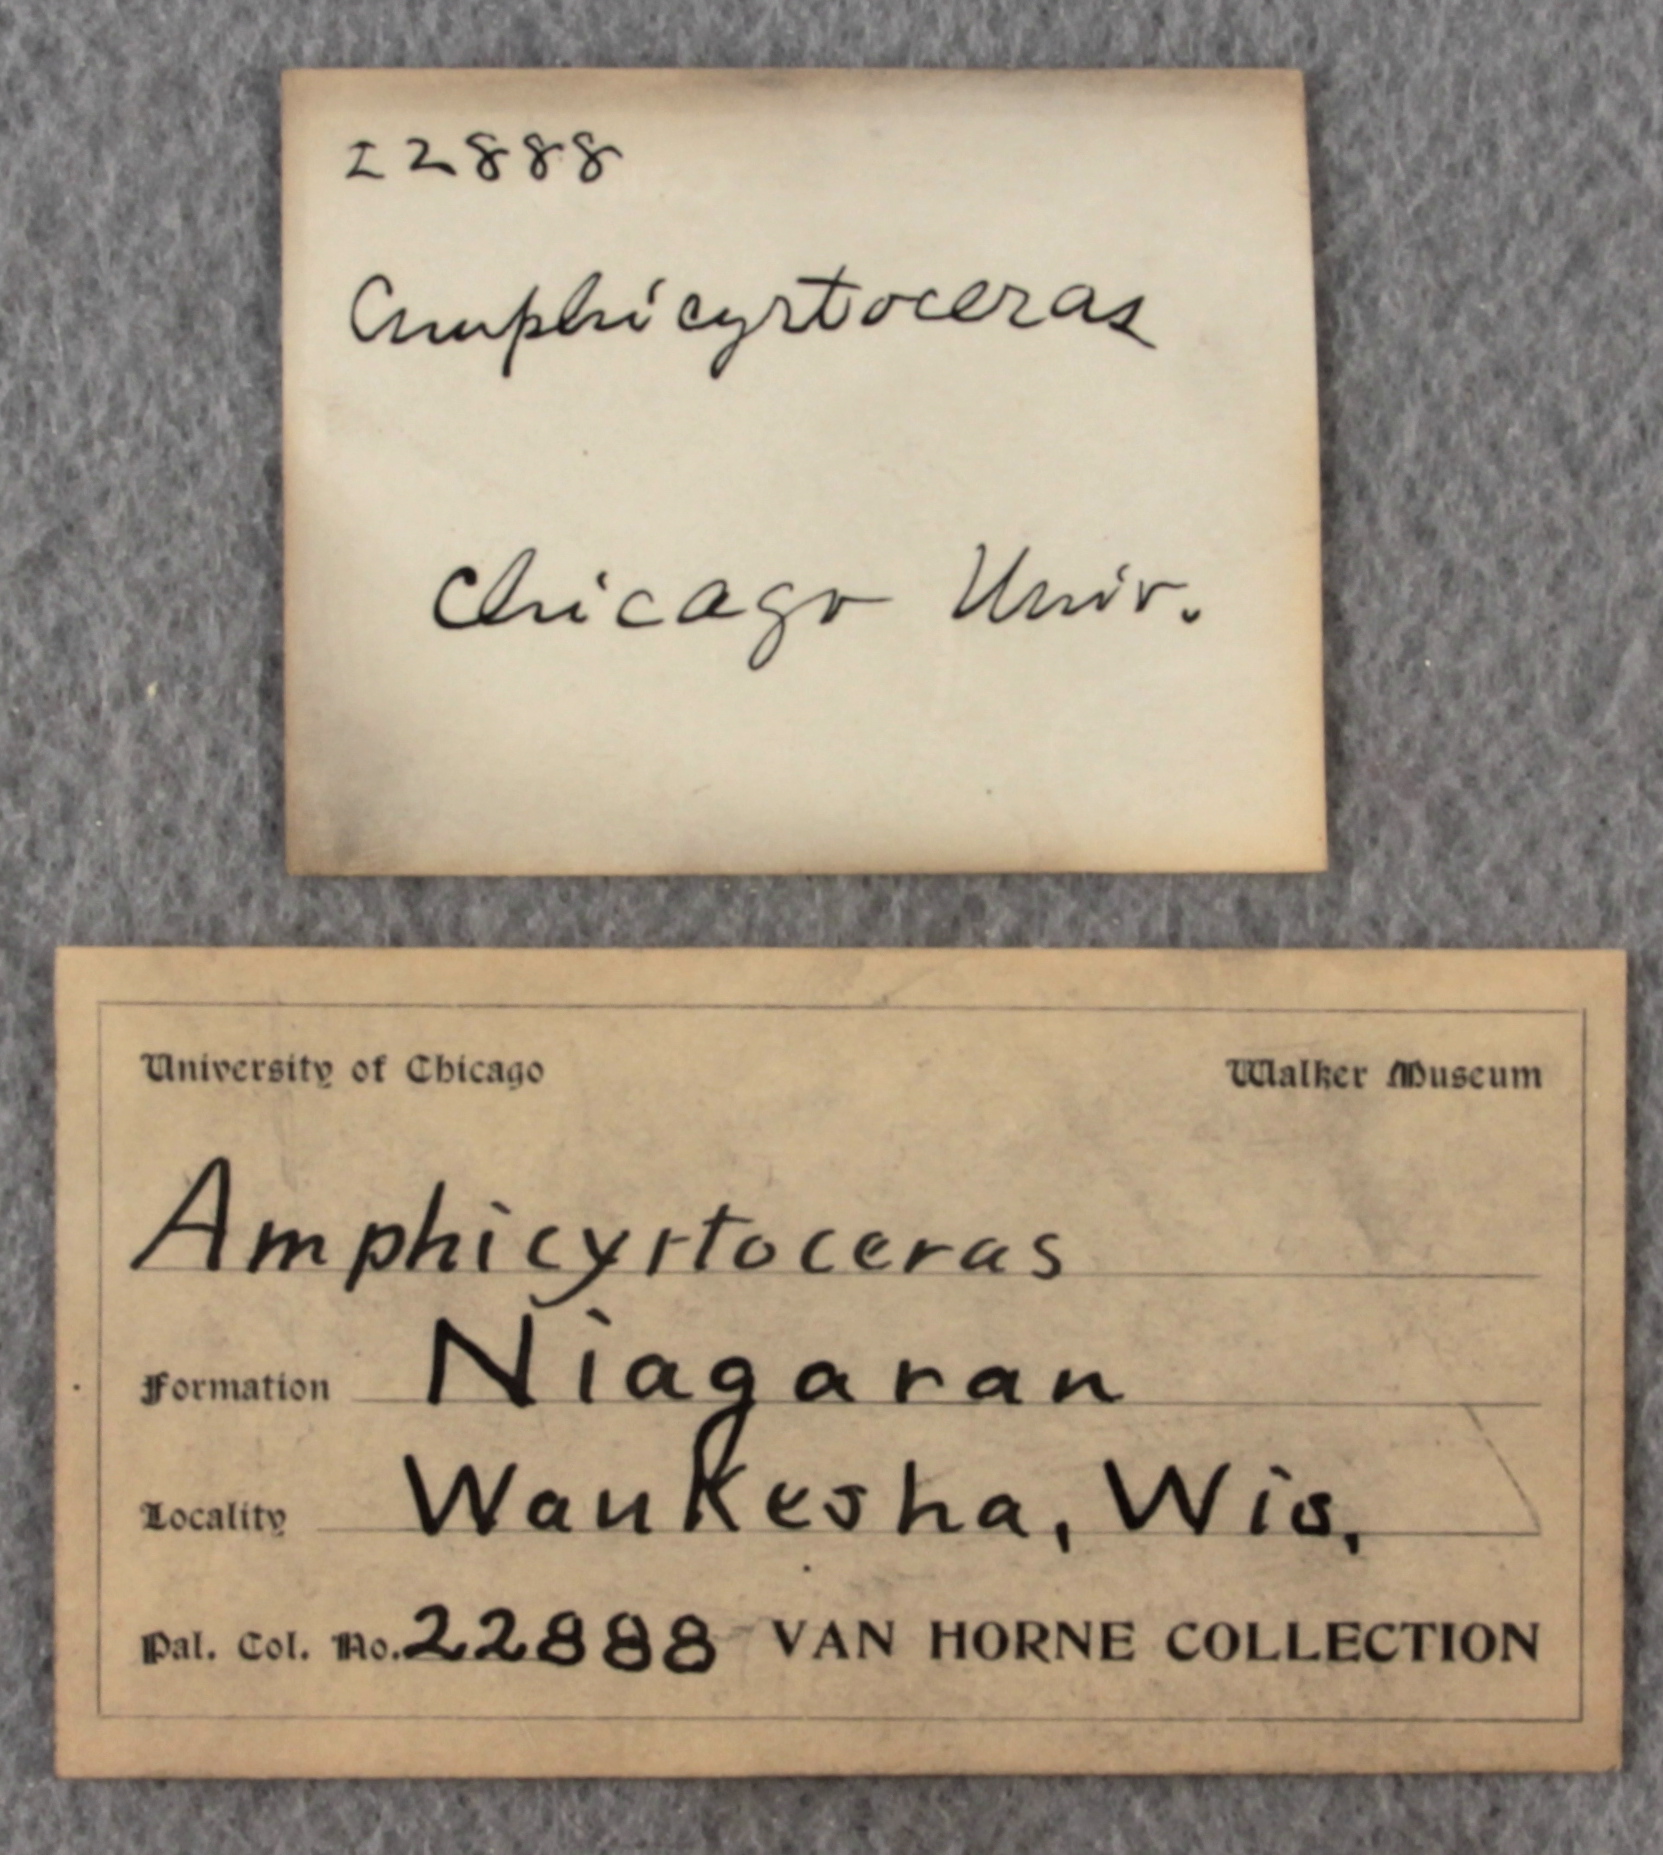 22888
Amphicyrtoceras
Chicago Univ.
University of Chicago Walker Museum
Amphicyrtoceras
Formation Niagaran
Locality Waukesha, Wis,
Pal. Col. No. 22888 VAN HORNE COLLECTION